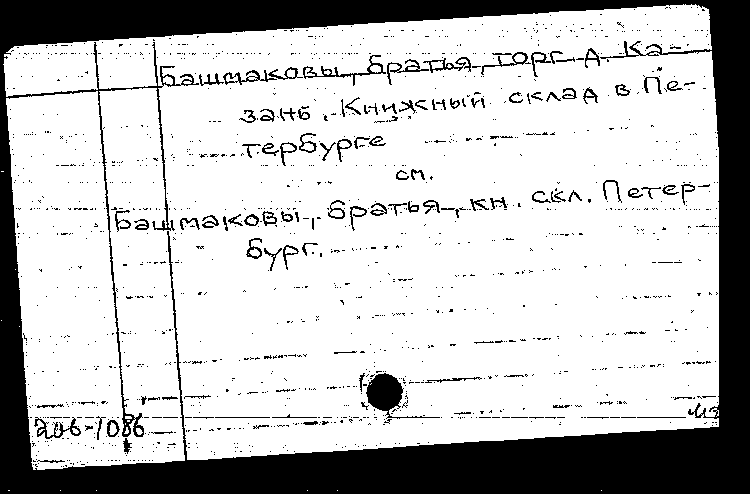 Башмаковы, братья, торг. д. Ка-
зань. Книжный склад в Пе-
тербурге
см.
Башмаковы, братья, кн. скл. Петер-
бург.
206-1086